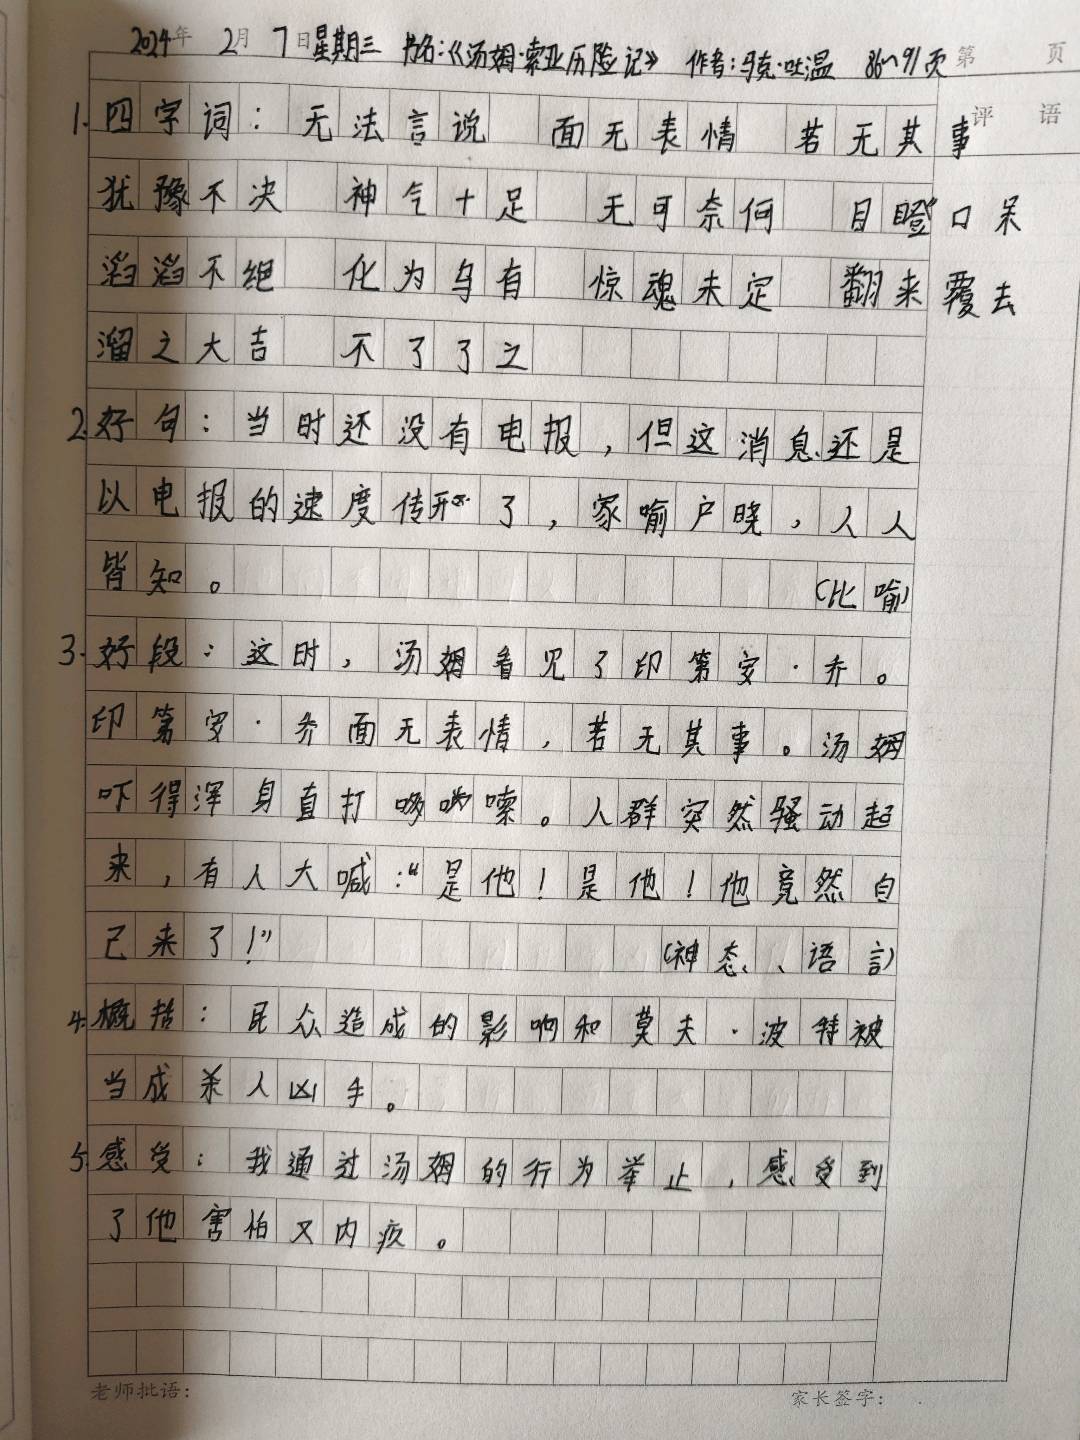 2024年 2月 7日 星期三 书名：《汤姆·索亚历险记》 作者：马克·吐温 86~91页 第 页
评 语
1. 四字词：无法言说 面无表情 若无其事
犹豫不决 神气十足 无可奈何 目瞪口呆
滔滔不绝 化为乌有 惊魂未定 翻来覆去
溜之大吉 不了了之
2. 好句：当时还没有电报，但这消息还是
以电报的速度传开了，家喻户晓，人人
皆知。 （比喻）
3. 好段：这时，汤姆看见了印第安·乔。
印第安·乔面无表情，若无其事。汤姆
吓得浑身直打哆嗦。人群突然骚动起
来，有人大喊：“是他！是他！他竟然自
己来了！” （神态、语言）
4. 概括：民众造成的影响和莫夫·波特被
当成杀人凶手。
5. 感受：我通过汤姆的行为举止，感受到
了他害怕又内疚。
老师批语： 家长签字：